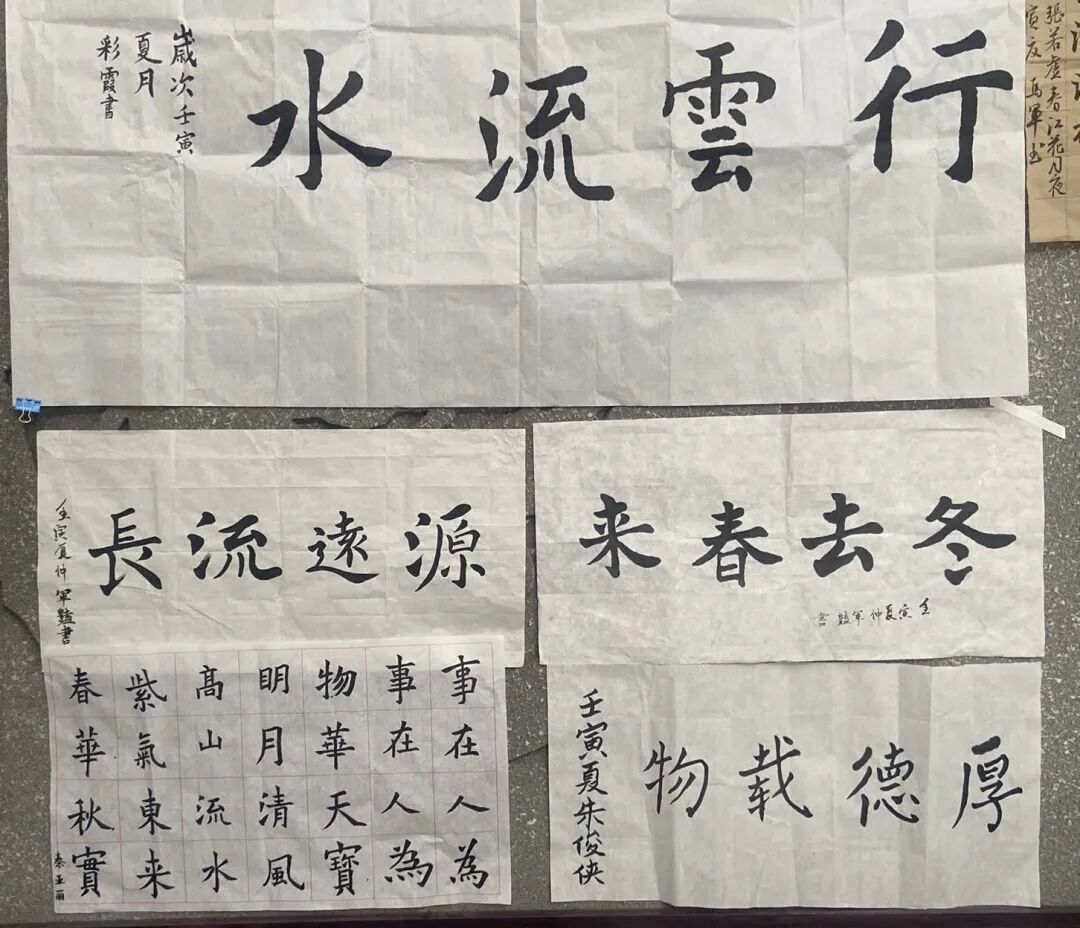 行雲流水
歲次壬寅
夏月
彩霞書
張若虛春江花月夜
源遠流長
壬寅夏仲軍豔書
冬去春来
壬寅夏仲軍豔書
事在人為
事在人為
物華天寶
明月清風
高山流水
紫氣東来
春華秋實
秦亚丽
厚德载物
壬寅夏朱俊侠